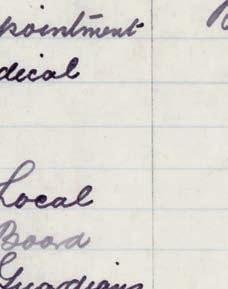 ppointment
dical
Local
Board
Guardians